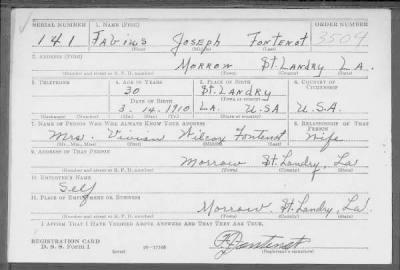 SERIAL NUMBER 1. NAME (Print) ORDER NUMBER
141 Fabius Joseph Fontenot 3504
2. ADDRESS (Print)
Morrow St. Landry La.
(Number and street or R. F. D. number) (Town) (County) (State)
3. TELEPHONE 4. AGE IN YEARS 5. PLACE OF BIRTH 6. COUNTRY OF CITIZENSHIP
30 St. Landry
DATE OF BIRTH (Town or county)
3-14-1910 La. U.S.A U.S.A.
(Mo.) (Day) (Yr.) (State or country)
7. NAME OF PERSON WHO WILL ALWAYS KNOW YOUR ADDRESS 8. RELATIONSHIP OF THAT PERSON
Mrs. Vivian Fontenot Wife
(Mr., Mrs., Miss) (First) (Middle) (Last)
9. ADDRESS OF THAT PERSON
Morrow St. Landry, La
(Number and street or R. F. D. number) (Town) (County) (State)
10. EMPLOYER'S NAME
Self
11. PLACE OF EMPLOYMENT OR BUSINESS
Morrow, St. Landry, La
(Number and street or R. F. D. number) (Town) (County) (State)
I AFFIRM THAT I HAVE VERIFIED ABOVE ANSWERS AND THAT THEY ARE TRUE.
REGISTRATION CARD
D. S. S. Form 1 (over) 16-17105 Fontenot
(Registrant's signature)